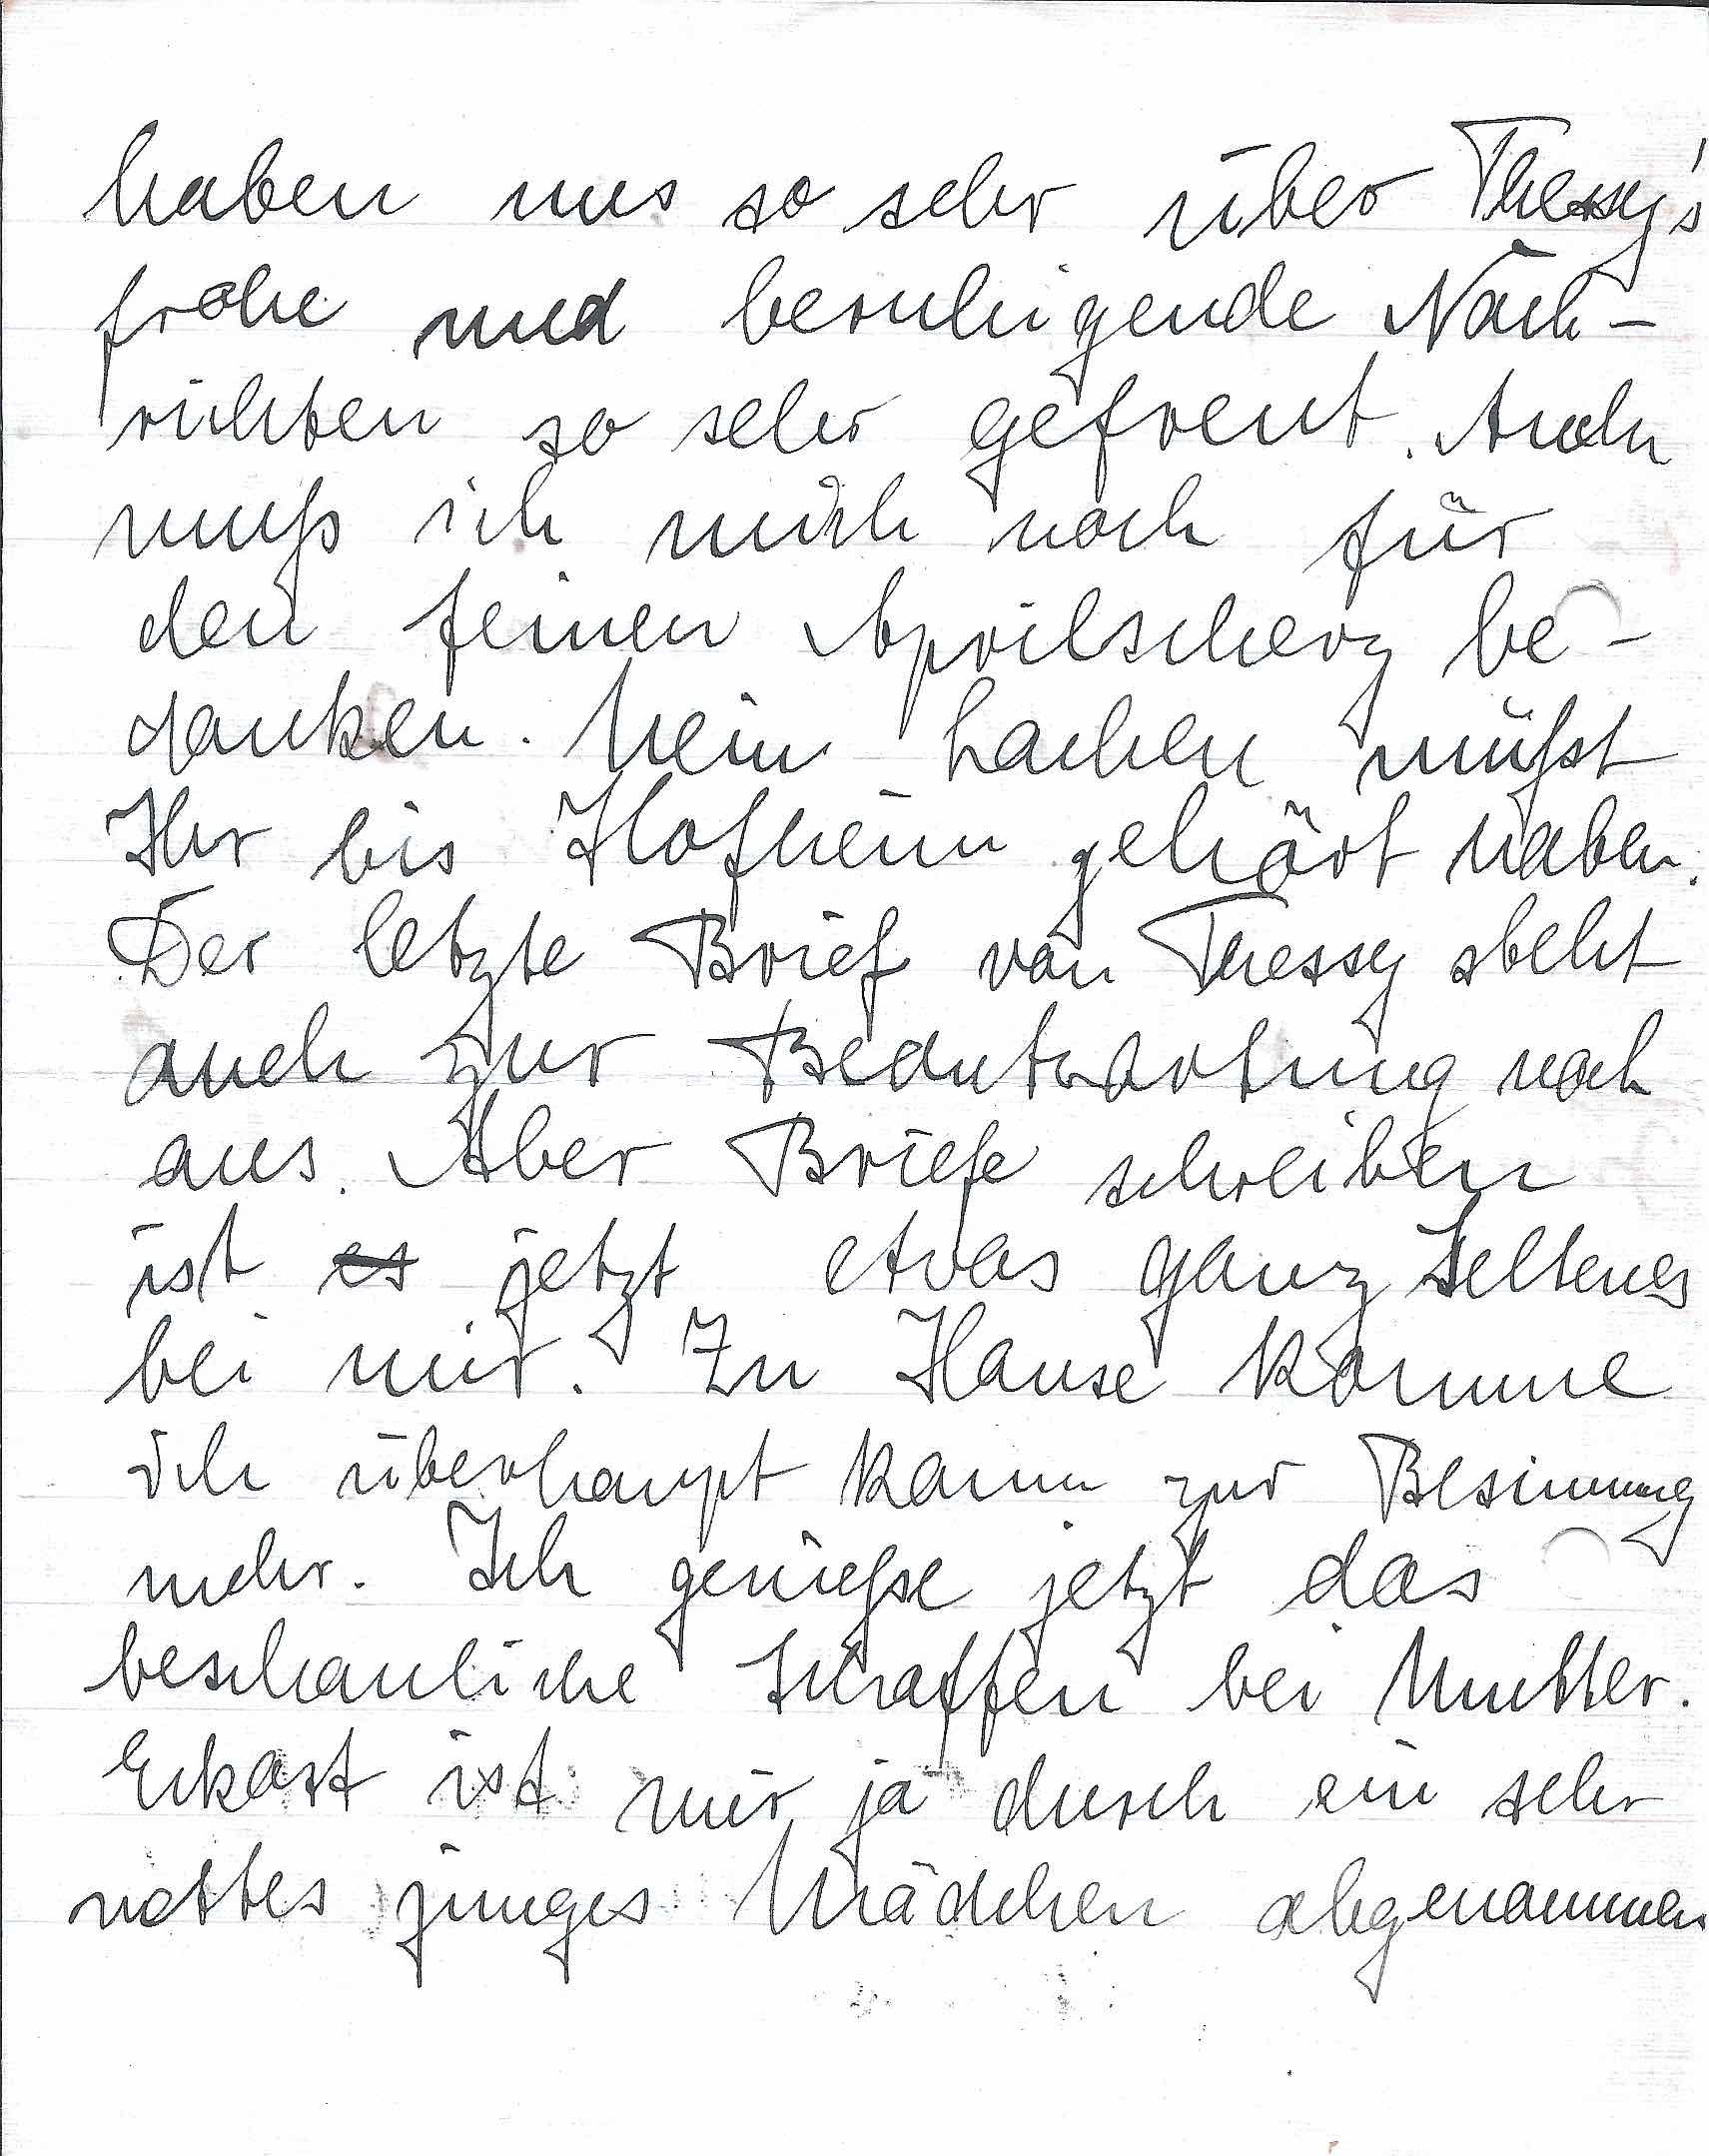 haben uns so sehr über Thessy's
frohe und beruhigende Nach-
richten so sehr gefreut. Auch
muß ich mich noch für
den feinen Aprilscherz be-
danken. Mein Lachen müßt
Ihr bis Hofheim gehört haben.
Der letzte Brief von Thessy steht
auch zur Beantwortung noch
aus. Aber Briefe schreiben
ist es jetzt etwas ganz Seltenes
bei mir. Zu Hause komme
ich überhaupt kaum zur Besinnung
mehr. Ich genieße jetzt das
beschauliche Schaffen bei Mutter.
Eckart ist mir ja durch ein sehr
nettes junges Mädchen abgenommen